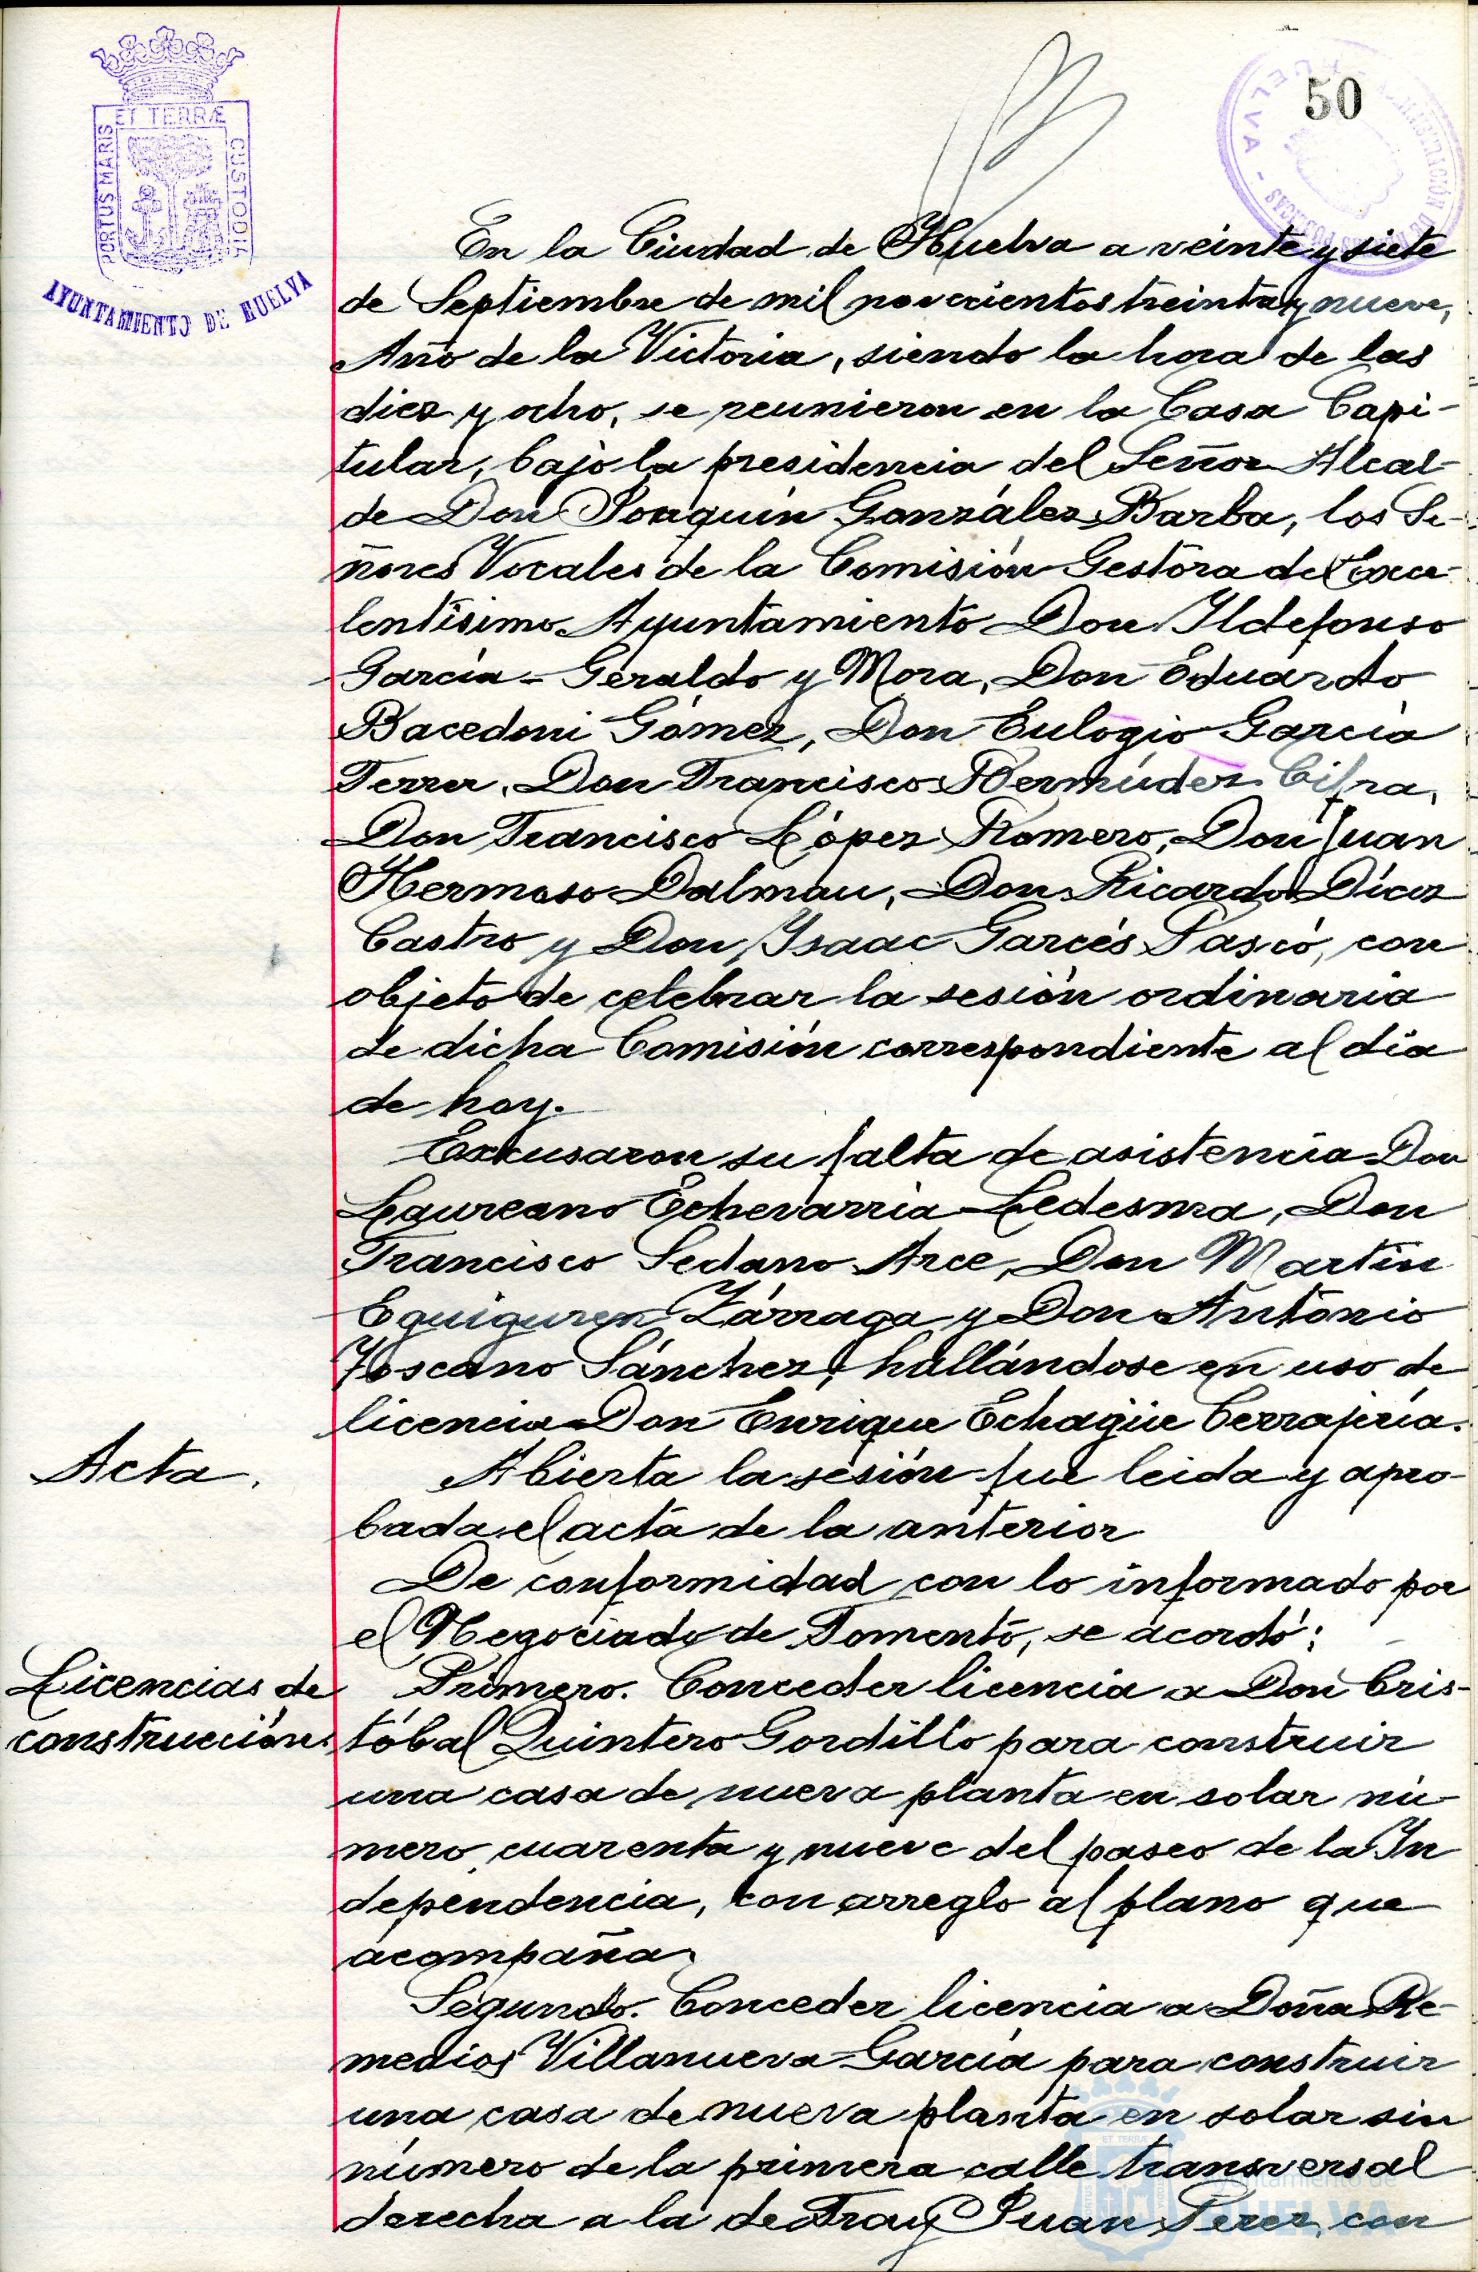 50
ET TERRÆ
PORTUS MARIS
CUSTODIA
AYUNTAMIENTO DE HUELVA
En la Ciudad de Huelva a veinte y siete
de Septiembre de mil novecientos treinta y nueve,
Año de la Victoria, siendo la hora de las
diez y ocho, se reunieron en la Casa Capi-
tular, bajo la presidencia del Señor Alcal-
de Don Joaquín González Barba, los Se-
ñores Vocales de la Comisión Gestora del Exce-
lentísimo Ayuntamiento Don Ildefonso
García-Geraldo y Mora, Don Eduardo
Bacedoni Gómez, Don Eulogio García
Ferrer, Don Francisco Bermúdez Cifra,
Don Francisco López Romero, Don Juan
Hermoso Dalmau, Don Ricardo Díez
Castro y Don Isaac Garcés Pascó, con
objeto de celebrar la sesión ordinaria
de dicha Comisión correspondiente al día
de hoy.
Excusaron su falta de asistencia Don
Laureano Echevarria Ledesma, Don
Francisco Sedano Arce, Don Martín
Eguiguren Zárraga y Don Antonio
Toscano Sánchez, hallándose en uso de
licencia Don Enrique Echagüe Cerrajería.
Acta.
Abierta la sesión fue leida y apro-
bada el acta de la anterior
De conformidad con lo informado por
el Negociado de Fomento, se acordó:
Licencias de
construcción.
Primero. Conceder licencia a Don Cris-
tóbal Quintero Gordillo para construir
una casa de nueva planta en solar nú-
mero cuarenta y nueve del paseo de la In
dependencia, con arreglo al plano que
acompaña.
Segundo. Conceder licencia a Doña Re-
medios Villanueva García para construir
una casa de nueva planta en solar sin
número de la primera calle transversal
derecha a la de Fray Juan Perez, con
HUELVA